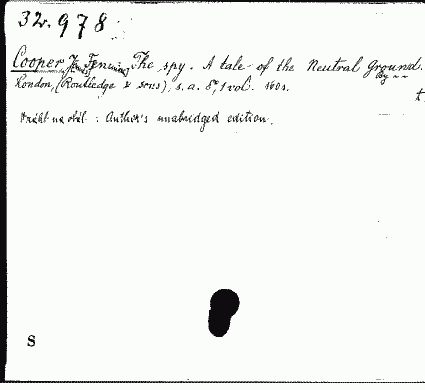 32.978
Cooper James Fenning The spy. A tale of the Neutral Ground. By ~~
London, (Routledge & sons), s. a. 8°, 1 vol.
: Author's unabridged edition.
t
S